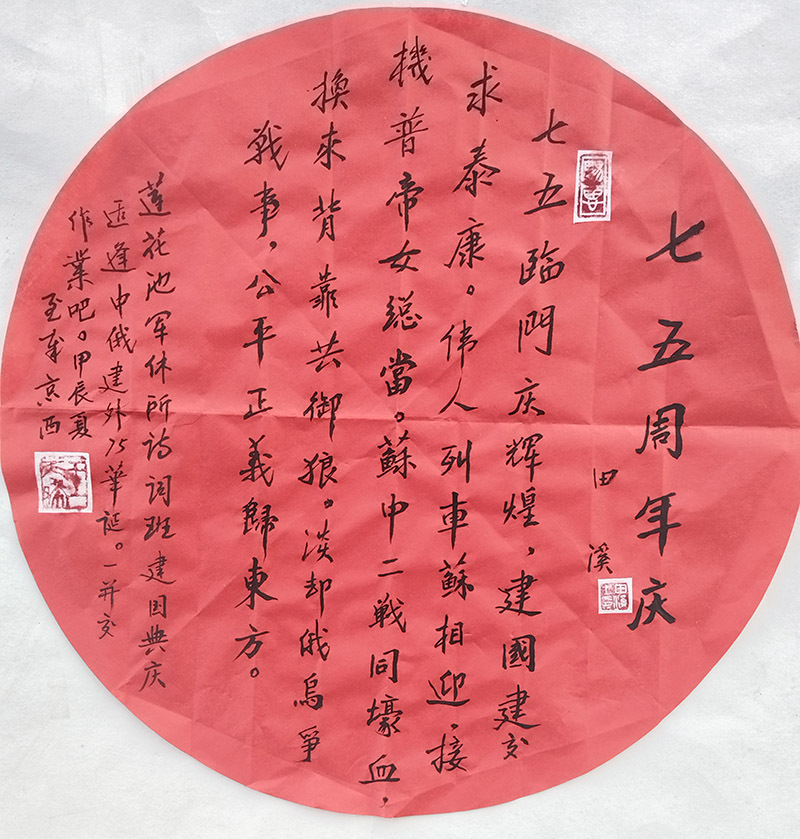 七五周年庆
田溪
七五臨門庆辉煌，建國建交
求泰康。伟人列車蘇相迎，接
機普帝女總當。蘇中二戦同壕血，
換來背靠共御狼。淡却俄烏爭
戦事，公平正義歸東方。
莲花池军休所诗词班建国典庆
适逢中俄建外75華诞。一并交
作業吧。甲辰夏
至草京西